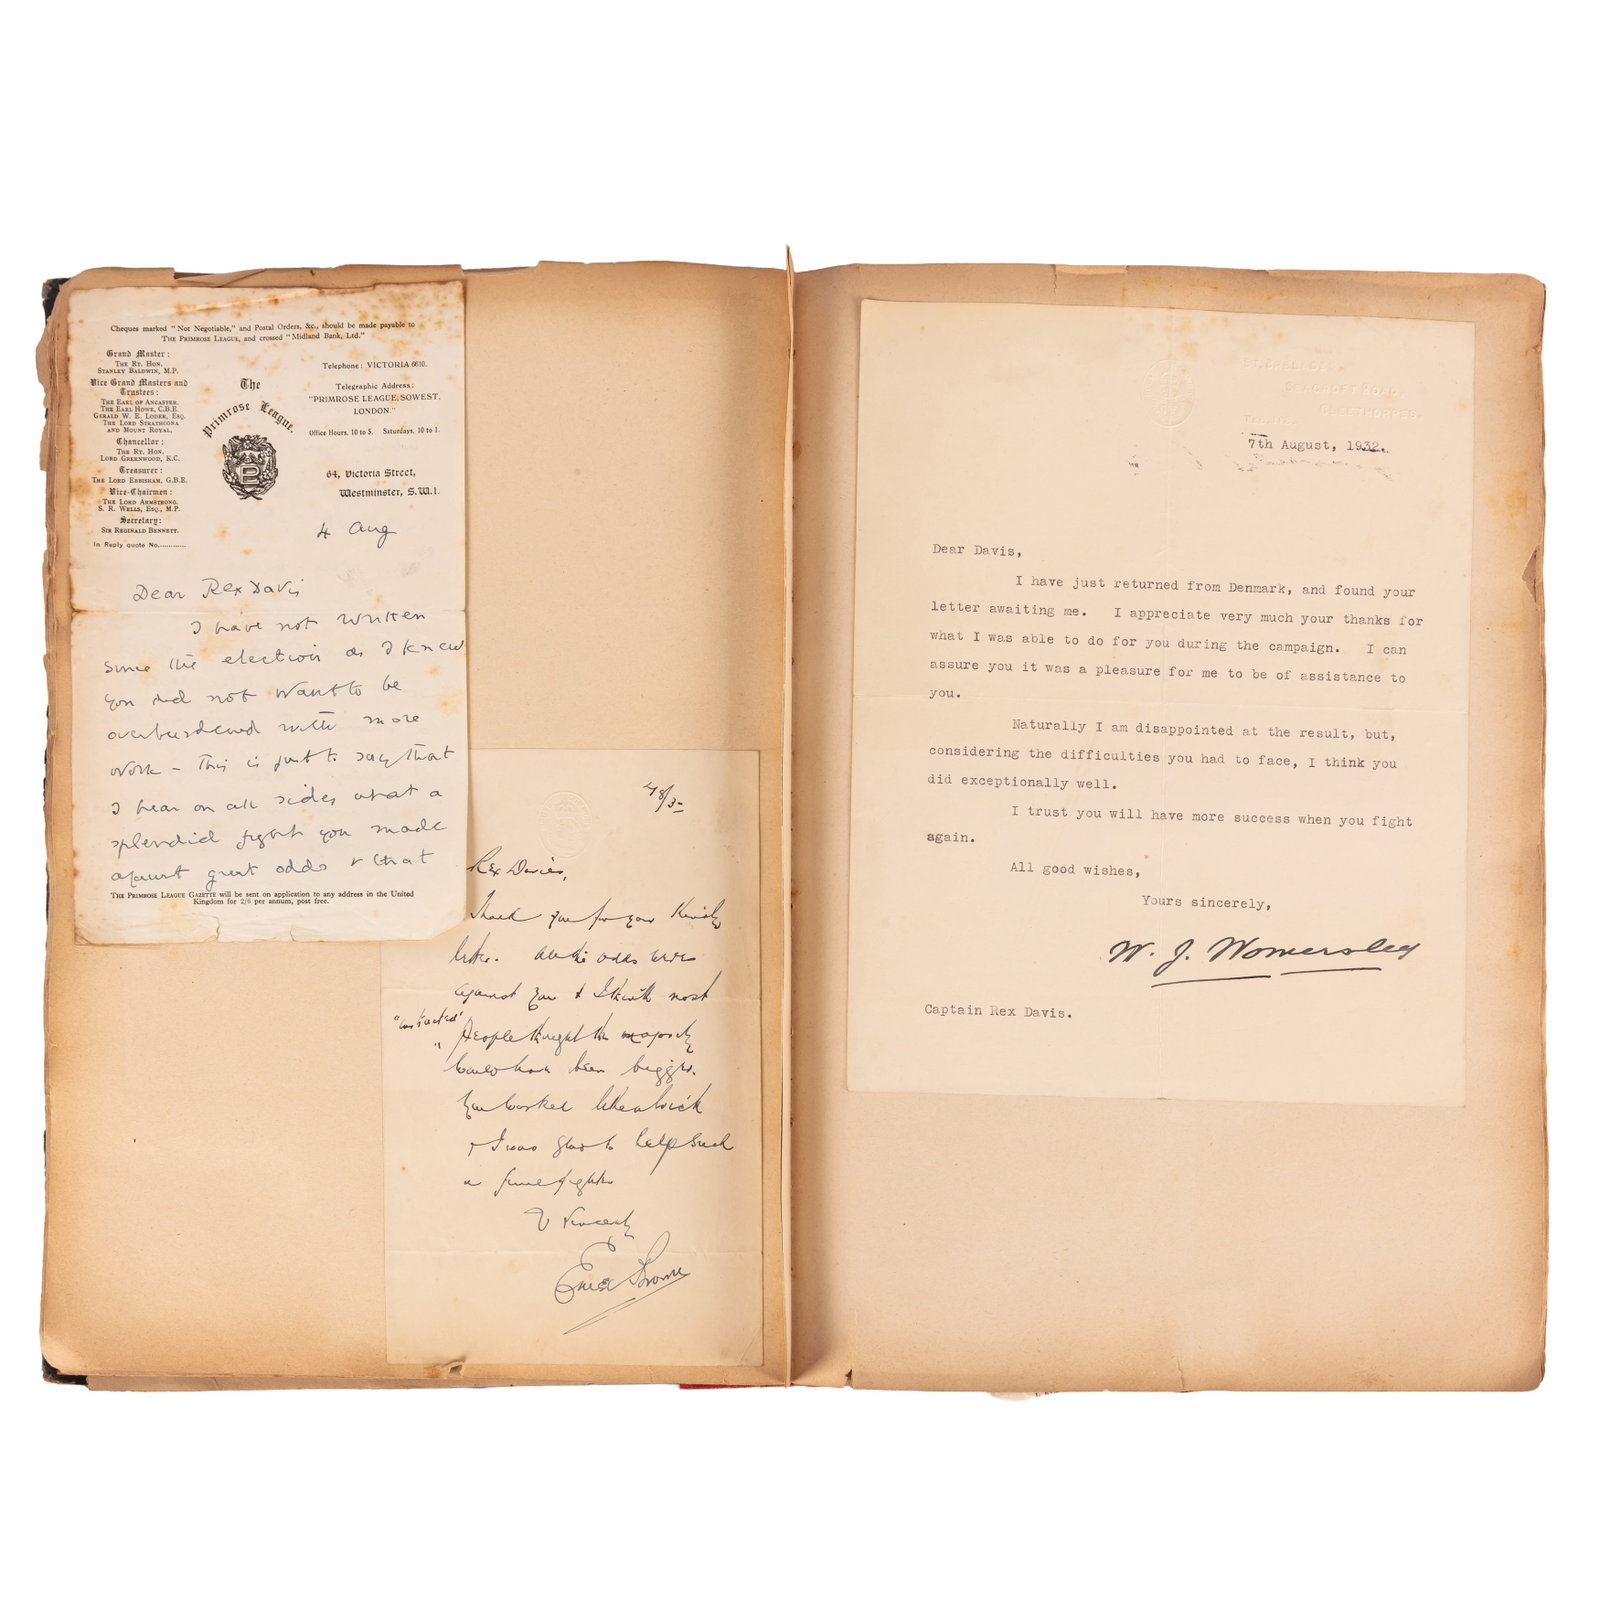 Cheques marked "Not Negotiable," and Postal Orders, &c., should be made payable to
THE PRIMROSE LEAGUE, and crossed "Midland Bank, Ltd."
Grand Master:
THE RT. HON.
STANLEY BALDWIN, M.P.
Vice Grand Masters and
Trustees:
THE EARL OF ANCASTER.
THE EARL HOWE, C.B.E.
GERALD W. E. LODER, ESQ.
THE LORD STRATHCONA
AND MOUNT ROYAL.
Chancellor:
THE RT. HON.
LORD GREENWOOD, K.C.
Treasurer:
THE LORD EBBISHAM, G.B.E.
Vice-Chairmen:
THE LORD ARMSTRONG.
S. R. WELLS, ESQ., M.P.
Secretary:
SIR REGINALD BENNETT.
In Reply quote No.............
The
Primrose League.
Telephone: VICTORIA 6610.
Telegraphic Address:
"PRIMROSE LEAGUE, SOWEST,
LONDON."
Office Hours, 10 to 5. Saturdays, 10 to 1.
64, Victoria Street,
Westminster, S.W.1.
4 Aug
Dear Rex Davis
I have not written
since the election as I knew
you did not want to be
overburdened with more
work - This is just to say that
I hear on all sides what a
splendid fight you made
against great odds & that
THE PRIMROSE LEAGUE GAZETTE will be sent on application to any address in the United
Kingdom for 2/6 per annum, post free.
Rex Davies,
Thank you for your kindly
letter. All the odds were
against you & I think most
"instructed"
" people thought the majority
would have been bigger.
You worked like a brick
& I was glad to help such
a fine fighter
Y Sincerely
SEACROFT ROAD,
CLEETHORPES
7th August, 1932.
Dear Davis,
I have just returned from Denmark, and found your
letter awaiting me. I appreciate very much your thanks for
what I was able to do for you during the campaign. I can
assure you it was a pleasure for me to be of assistance to
you.
Naturally I am disappointed at the result, but,
considering the difficulties you had to face, I think you
did exceptionally well.
I trust you will have more success when you fight
again.
All good wishes,
Yours sincerely,
W. J. Womersley
Captain Rex Davis.